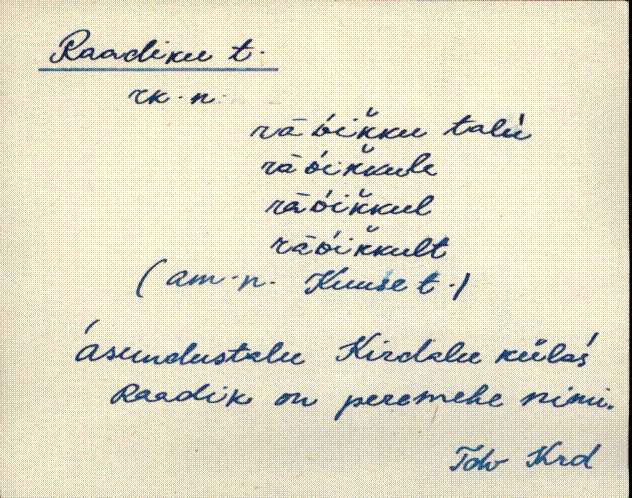 Raadiku t.
rk. n.
rāδik̆ku talu
rāδik̆kule
rāδik̆kul
rāδik̆kult
(am. n. Kuuse t.)
Asundustalu Kirdalu külas
Raadik on peremehe nimi.
Krd